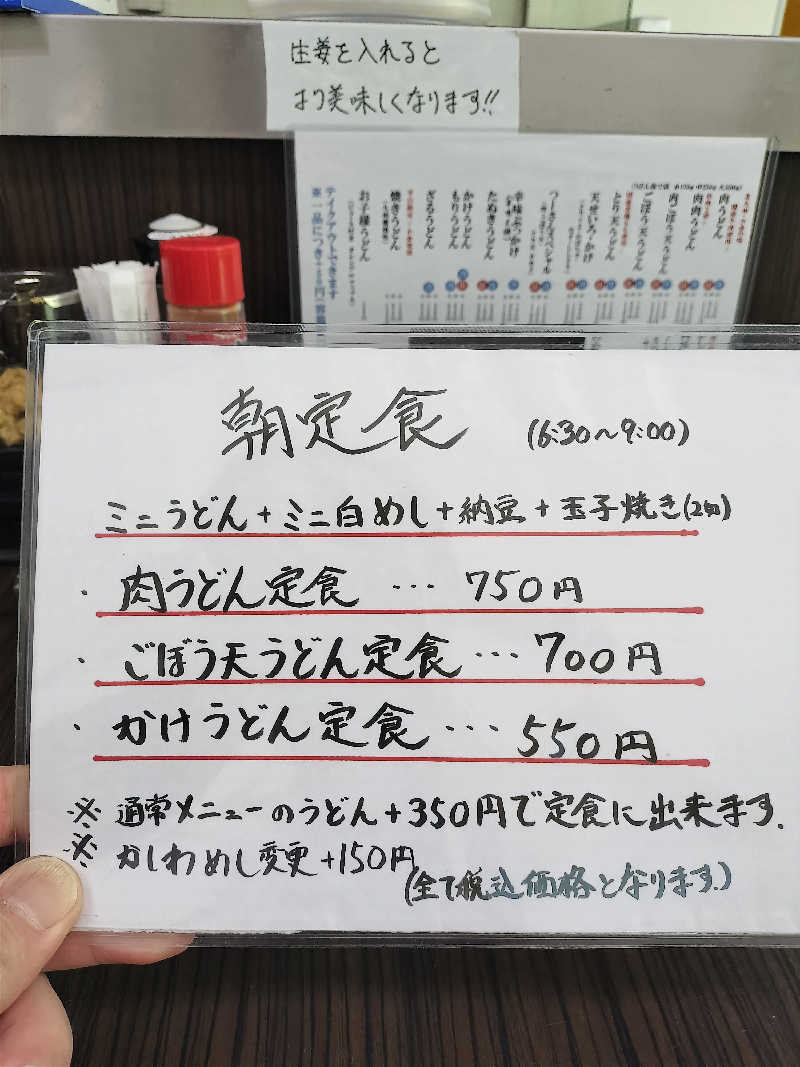 生姜を入れると
より美味しくなります!!
肉うどん
肉肉うどん
肉ごぼう天うどん
ごぼう天うどん
とり天うどん
天ぜいろ・かけ
つーさんスペシャル
辛味ぶっかけ
たぬきうどん
かけうどん
もりうどん
ざるうどん
焼きうどん
お子様うどん
テイクアウトできます
朝定食 (6:30〜9:00)
ミニうどん+ミニ白めし+納豆+玉子焼き(2切)
・肉うどん定食 … 750円
・ごぼう天うどん定食 … 700円
・かけうどん定食 … 550円
※ 通常メニューのうどん+350円で定食に出来ます.
※ かしわめし変更+150円
(全て税込価格となります.)